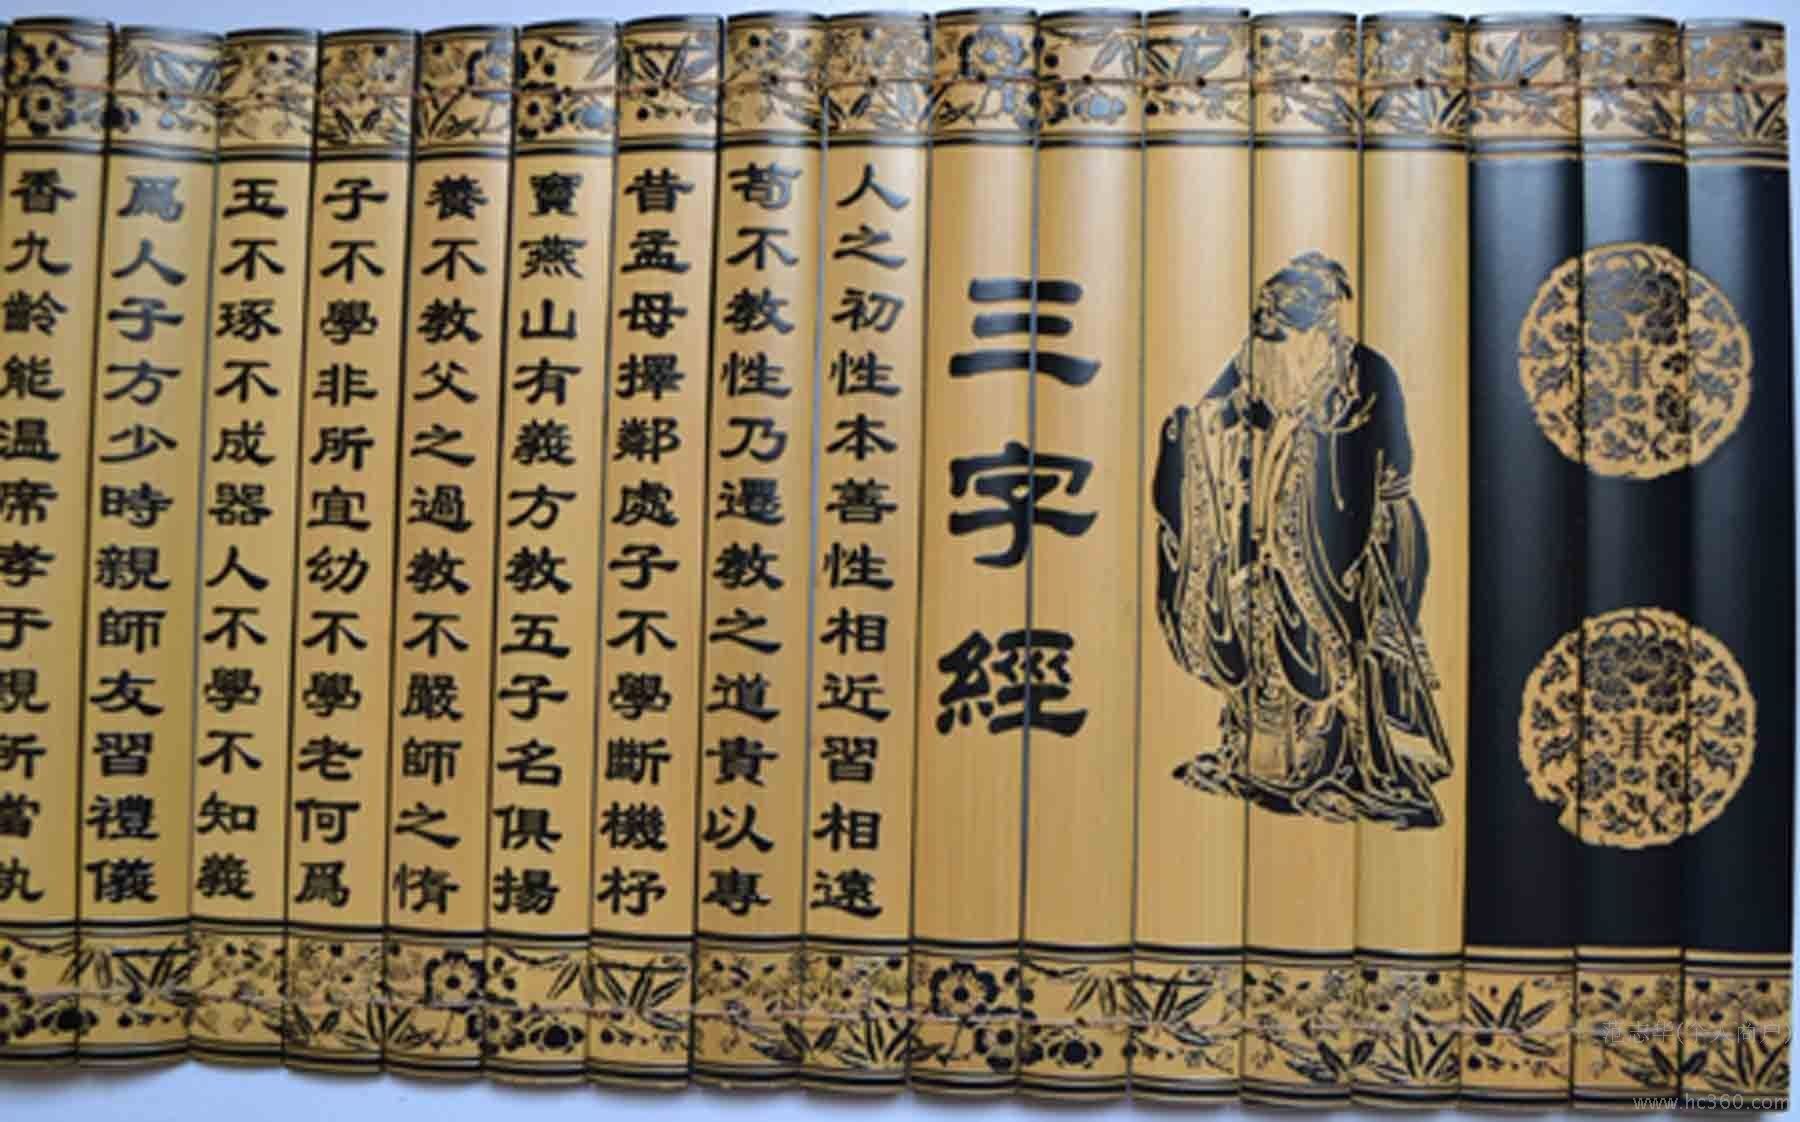 三字經
人之初性本善性相近習相遠
苟不教性乃遷教之道貴以專
昔孟母擇鄰處子不學斷機杼
竇燕山有義方教五子名俱揚
養不教父之過教不嚴師之惰
子不學非所宜幼不學老何爲
玉不琢不成器人不學不知義
爲人子方少時親師友習禮儀
香九齡能温席孝于親所當執
范志华(个人商户)
www.hc360.com